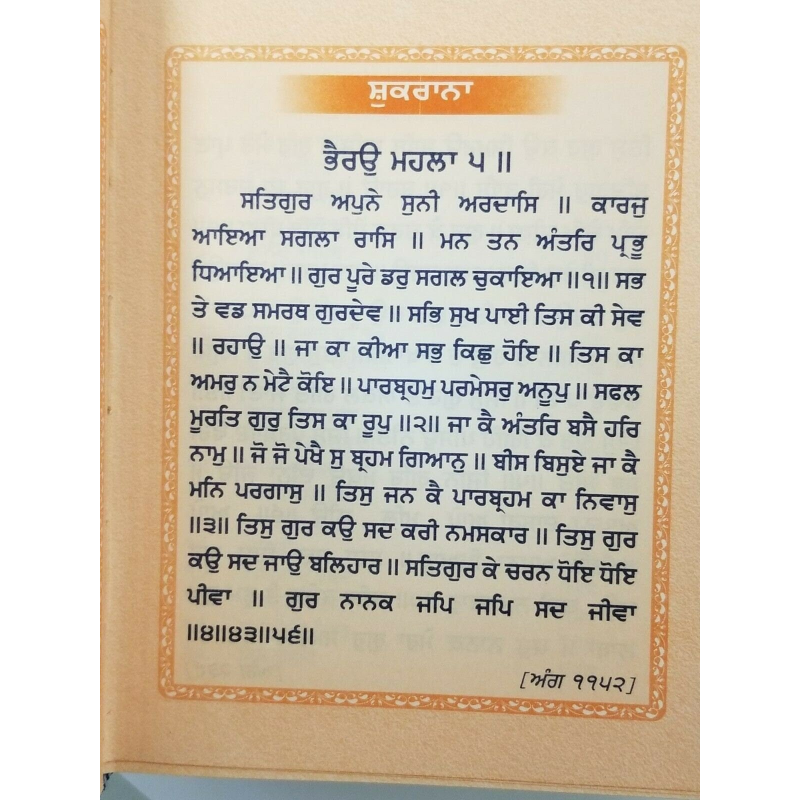 ਸ਼ੁਕਰਾਨਾ
ਭੈਰਉ ਮਹਲਾ ੫ ॥
ਸਤਿਗੁਰ ਅਪੁਨੇ ਸੁਨੀ ਅਰਦਾਸਿ ॥ ਕਾਰਜੁ
ਆਇਆ ਸਗਲਾ ਰਾਸਿ ॥ ਮਨ ਤਨ ਅੰਤਰਿ ਪ੍ਰਭੂ
ਧਿਆਇਆ ॥ ਗੁਰ ਪੂਰੇ ਡਰੁ ਸਗਲ ਚੁਕਾਇਆ ॥੧॥ ਸਭ
ਤੇ ਵਡ ਸਮਰਥ ਗੁਰਦੇਵ ॥ ਸਭਿ ਸੁਖ ਪਾਈ ਤਿਸ ਕੀ ਸੇਵ
॥ ਰਹਾਉ ॥ ਜਾ ਕਾ ਕੀਆ ਸਭੁ ਕਿਛੁ ਹੋਇ ॥ ਤਿਸ ਕਾ
ਅਮਰੁ ਨ ਮੇਟੈ ਕੋਇ ॥ ਪਾਰਬ੍ਰਹਮੁ ਪਰਮੇਸਰੁ ਅਨੂਪੁ ॥ ਸਫਲ
ਮੂਰਤਿ ਗੁਰੁ ਤਿਸ ਕਾ ਰੂਪੁ ॥੨॥ ਜਾ ਕੈ ਅੰਤਰਿ ਬਸੈ ਹਰਿ
ਨਾਮੁ ॥ ਜੋ ਜੋ ਪੇਖੈ ਸੁ ਬ੍ਰਹਮ ਗਿਆਨੁ ॥ ਬੀਸ ਬਿਸੁਏ ਜਾ ਕੈ
ਮਨਿ ਪਰਗਾਸੁ ॥ ਤਿਸੁ ਜਨ ਕੈ ਪਾਰਬ੍ਰਹਮ ਕਾ ਨਿਵਾਸੁ
॥੩॥ ਤਿਸੁ ਗੁਰ ਕਉ ਸਦ ਕਰੀ ਨਮਸਕਾਰ ॥ ਤਿਸੁ ਗੁਰ
ਕਉ ਸਦ ਜਾਉ ਬਲਿਹਾਰ ॥ ਸਤਿਗੁਰ ਕੇ ਚਰਨ ਧੋਇ ਧੋਇ
ਪੀਵਾ ॥ ਗੁਰ ਨਾਨਕ ਜਪਿ ਜਪਿ ਸਦ ਜੀਵਾ
॥੪॥੪੩॥੫੬॥
[ਅੰਗ ੧੧੫੨]